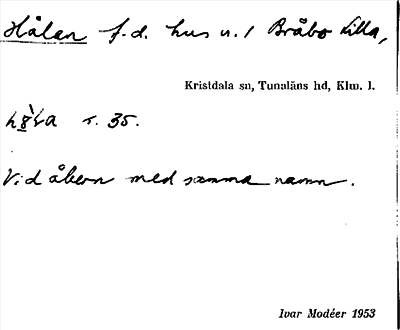 Hålan f.d. hus u. / Bråbo Lilla,
Kristdala sn, Tunaläns hd, Klm. l.
s. 35.
Vid åkern med samma namn.
Ivar Modéer 1953